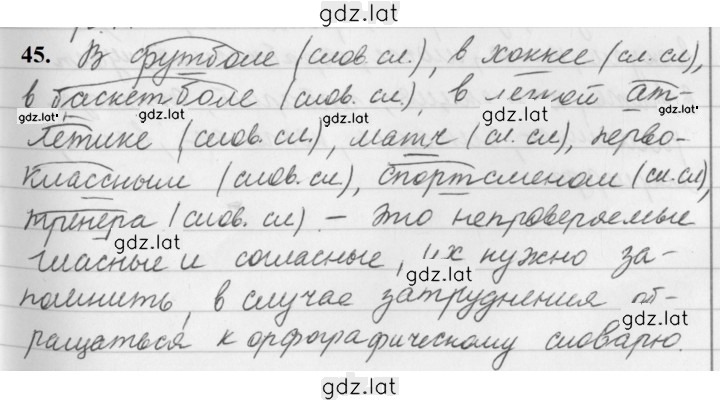 gdz.lat
45. В футболе (слов. сл.), в хоккее (сл. сл),
в баскетболе (слов. сл.), в легкой ат-
gdz.lat gdz.lat gdz.lat
летике (слов. сл), матч (сл. сл), перво-
классным (слов. сл), спортсменом (сл. сл),
тренера (слов. сл) – это непроверяемые
gdz.lat
гласные и согласные, их нужно за-
gdz.lat
помнить, в случае затруднения об-
gdz.lat
ращаться к орфографическому словарю.
gdz.lat